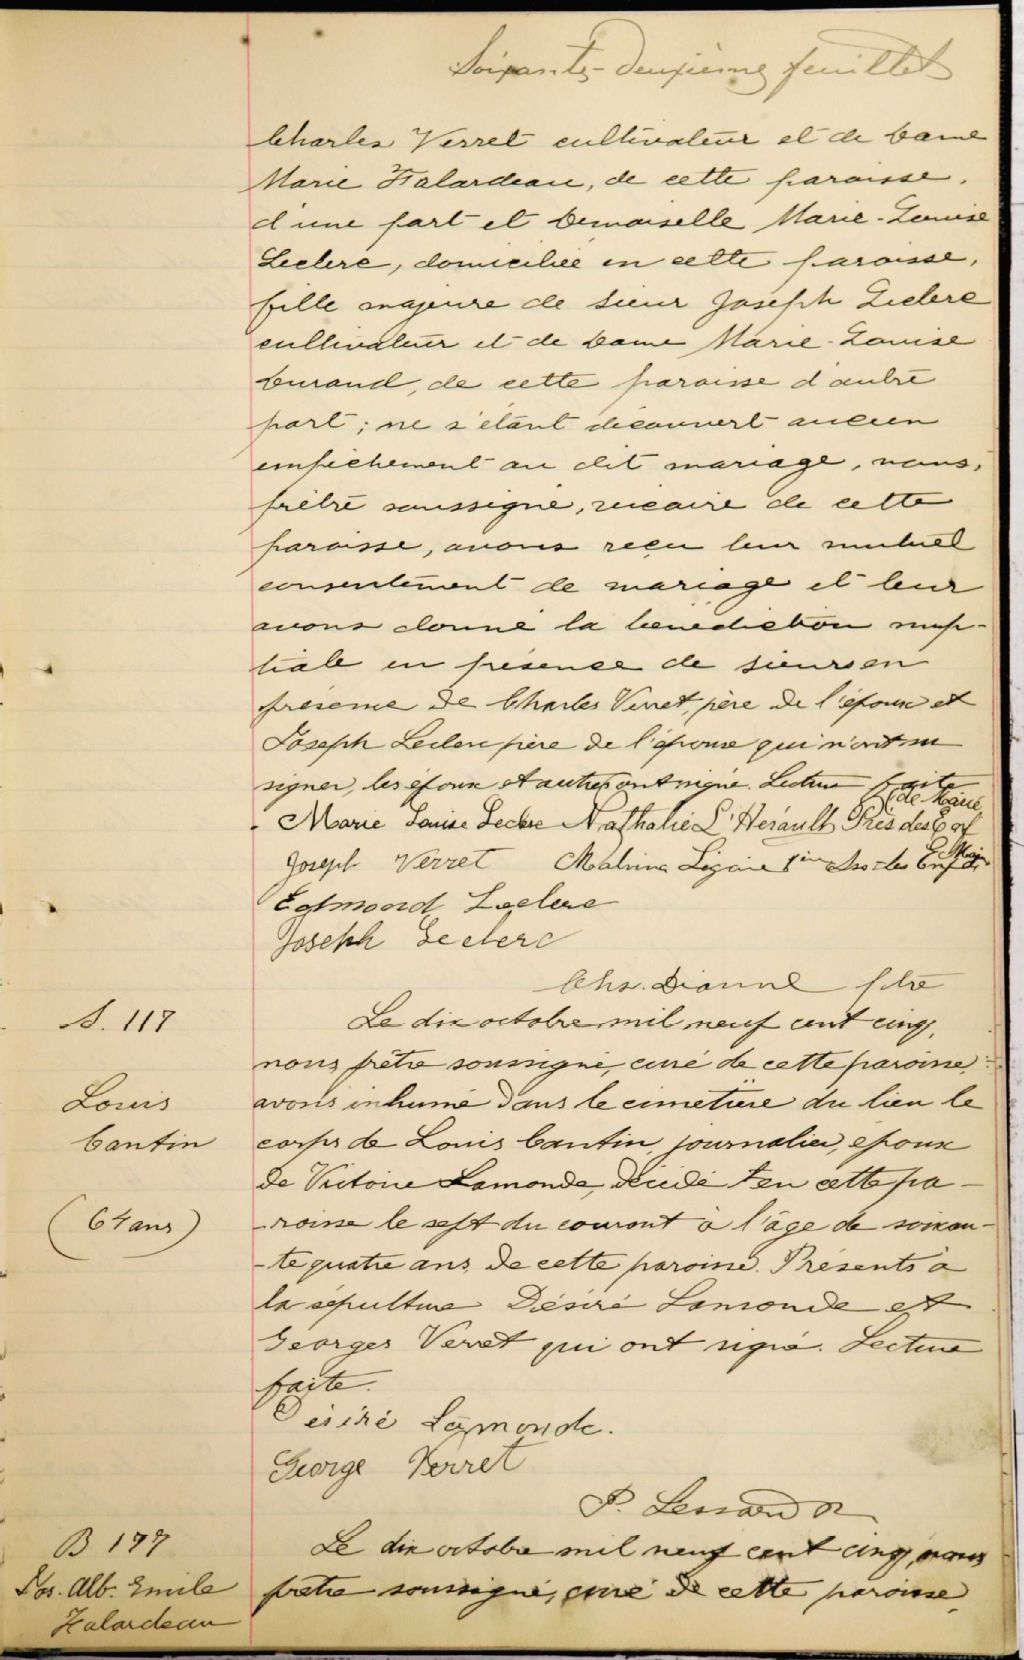 Soixante-deuxième feuillet
Charles Verret cultivateur et de Dame
Marie Falardeau, de cette paroisse,
d'une part et Demoiselle Marie-Louise
Leclerc, domiciliée en cette paroisse,
fille majeure de sieur Joseph Leclerc
cultivateur et de Dame Marie-Louise
Durand, de cette paroisse d'autre
part; ne s'étant découvert aucun
empêchement au dit mariage, nous,
prêtre soussigné, vicaire de cette
paroisse, avons reçu leur mutuel
consentement de mariage et leur
avons donné la bénédiction nup-
tiale en présence de sieurs en
présence de Charles Verret, père de l'époux et
Joseph Leclerc père de l'épouse qui n'ont su
signer, les époux et autres ont signé. Lecture faite
de Marie
Marie Louise Leclerc Nathalie L'Hérault Prés des Enf
Joseph Verret Malvina 1ière des Enf de
E Marie
Edmond Leclerc
Joseph Leclerc
Chs. Dionne ptre
S. 117
Le dix octobre mil neuf cent cinq,
nous prêtre soussigné, curé de cette paroisse,
Louis
avons inhumé dans le cimetière du lieu le
Cantin
corps de Louis Cantin, journalier, époux
de Victoire Lamonde, décédé en cette pa-
(64 ans)
-roisse le sept du courant à l'âge de soixan-
-te quatre ans, de cette paroisse. Présents à
la sépulture Désiré Lamonde et
Georges Verret qui ont signé. Lecture
faite.
Désiré Lamonde.
George Verret
P. Lessard
B 177
Le dix octobre mil neuf cent cinq, nous
Jos. Alb. Emile
prêtre soussigné, curé de cette paroisse,
Falardeau